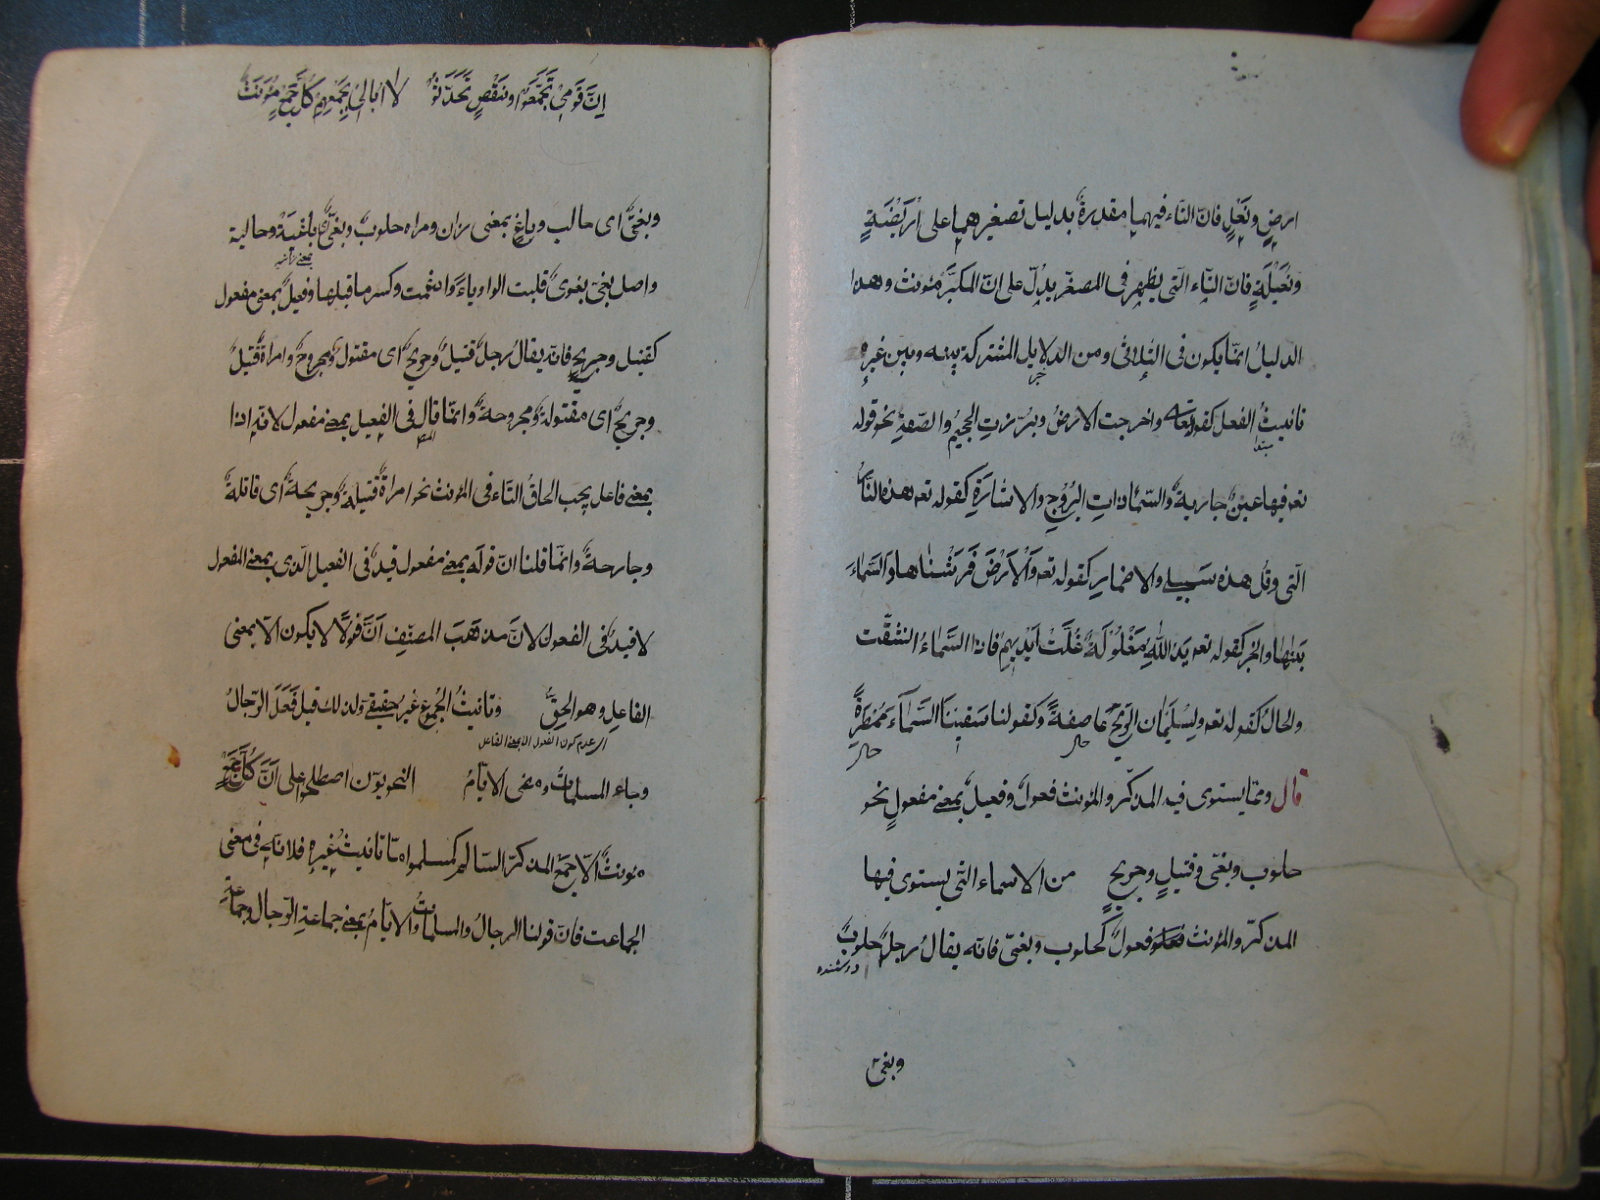 ارضٍ ونعلٍ فانّ التاء فيهما مقدرةٌ بدليل تصغيرهما على اُرَيْضَةٍ
ونُعَيْلَةٍ فانّ التاء التى يظهر فى المصغّر يدلّ على انّ المكبَّر مؤنث وهذا
الدليل انّما يكون فى الثلاثى ومن الدلايل المشتركة بينه وبين غيره
خبر
تانيثُ الفعل كقوله تعالى واخرجت الارضُ وبرّزتِ الجحيمُ والصّفةِ نحو قوله
مبتدا
تعه فيها عينٌ جاريةٌ والسّماء ذاتِ البُرُوجِ والاشارَةِ كقوله تعه هذه النّارُ
الّتى وقُل هذه سَبيلى والاضمارِ كقوله تعه وَالْاَرْضَ فَرَشْنٰاها والسَّماءَ
بَنَيْنٰها والخبر كقوله تعه يَدُ اللّٰهِ مَغْلُولَةٌ غُلَّتْ اَيْديهِمْ فاذا السَّماءُ انشقّت
والحال كقوله تعه ولِسُلَيْمٰان الرّيحَ عاصِفةً وكقولنا سقينا السَّماءَ مُمْطِرَةً
حال
حال
قال وممّا يستوى فيه المذكّر والمؤنث فعولٌ وفعيلٌ بمعنى مفعولٍ نحو
حلوب وبغىّ وقتيلٍ وجريحٍ من الاسماء التى يستوى فيها
المذكّر والمؤنث فعولٌ كحلوب وبغىّ فانّه يقالُ رجلٌ حلوبٌ
وبغىّ
اِنَّ قَومى تَجَمَّعَوُا وبنَقْصٍ تَحَدَّثوُا لا اُبالى بِجَمْعِهِمْ كلُّ جَمْعٍ مُؤنّثٌ
وبغىٌّ اى حالب وباغٍ بمعنى زان ومراه حلوبٌ وبغىٌّ باغيَةٌ وحالبة
بمعنى زانيه
واصل بغىّ بغوىٌ قلبت الواو ياءً وادغمت وكسر ما قبلها وفعيلٌ بمعنى مفعول
كقتيل وجريحٍ فانّه يقالُ رجلٌ قتيلٌ وجريحٌ اى مقتول ومجروحٌ وامراةٌ قتيلٌ
وجريحٌ اى مقتولةٌ ومجروحةٌ وانّما قال فى الفعيل بمعنى مفعول لانّه اذا
بمعنى فاعل يجب الحاقُ التّاء فى المؤنث نحو امراةٌ قتيلةٌ وجريحةٌ اى قاتلةٌ
وجارحةٌ وانّما قلنا انّ قولَه بمعنى مفعول قيدٌ فى الفعيل الّذى بمعنى المفعول
لا قيدٌ فى الفعول لانَّ مذهَبَ المصنّفِ اَنَّ فعولًا لا يكون الّا بمعنى
الفاعل وهو الحقّ وتانيثُ الجُموعِ غيرُ حقيقى ولذلك قيل فَعَلَ الرّجالُ
اى عدم كون الفعول الا بمعنى الفاعل
وجاء المسلماتُ ومضى الايّامُ النحويّون اصطلحوا على اَنَّ كُلَّ جَمْعٍ
مؤنثٌ الّا جَمْعَ المذكّر السّالم كمسلمون امّا تانيثُ غيره فلانّه فى معنى
الجماعت فانّ قولنا الرجالُ والمسلماتُ والايّامُ بمعنى جماعةِ الرّجال وجماعةِ